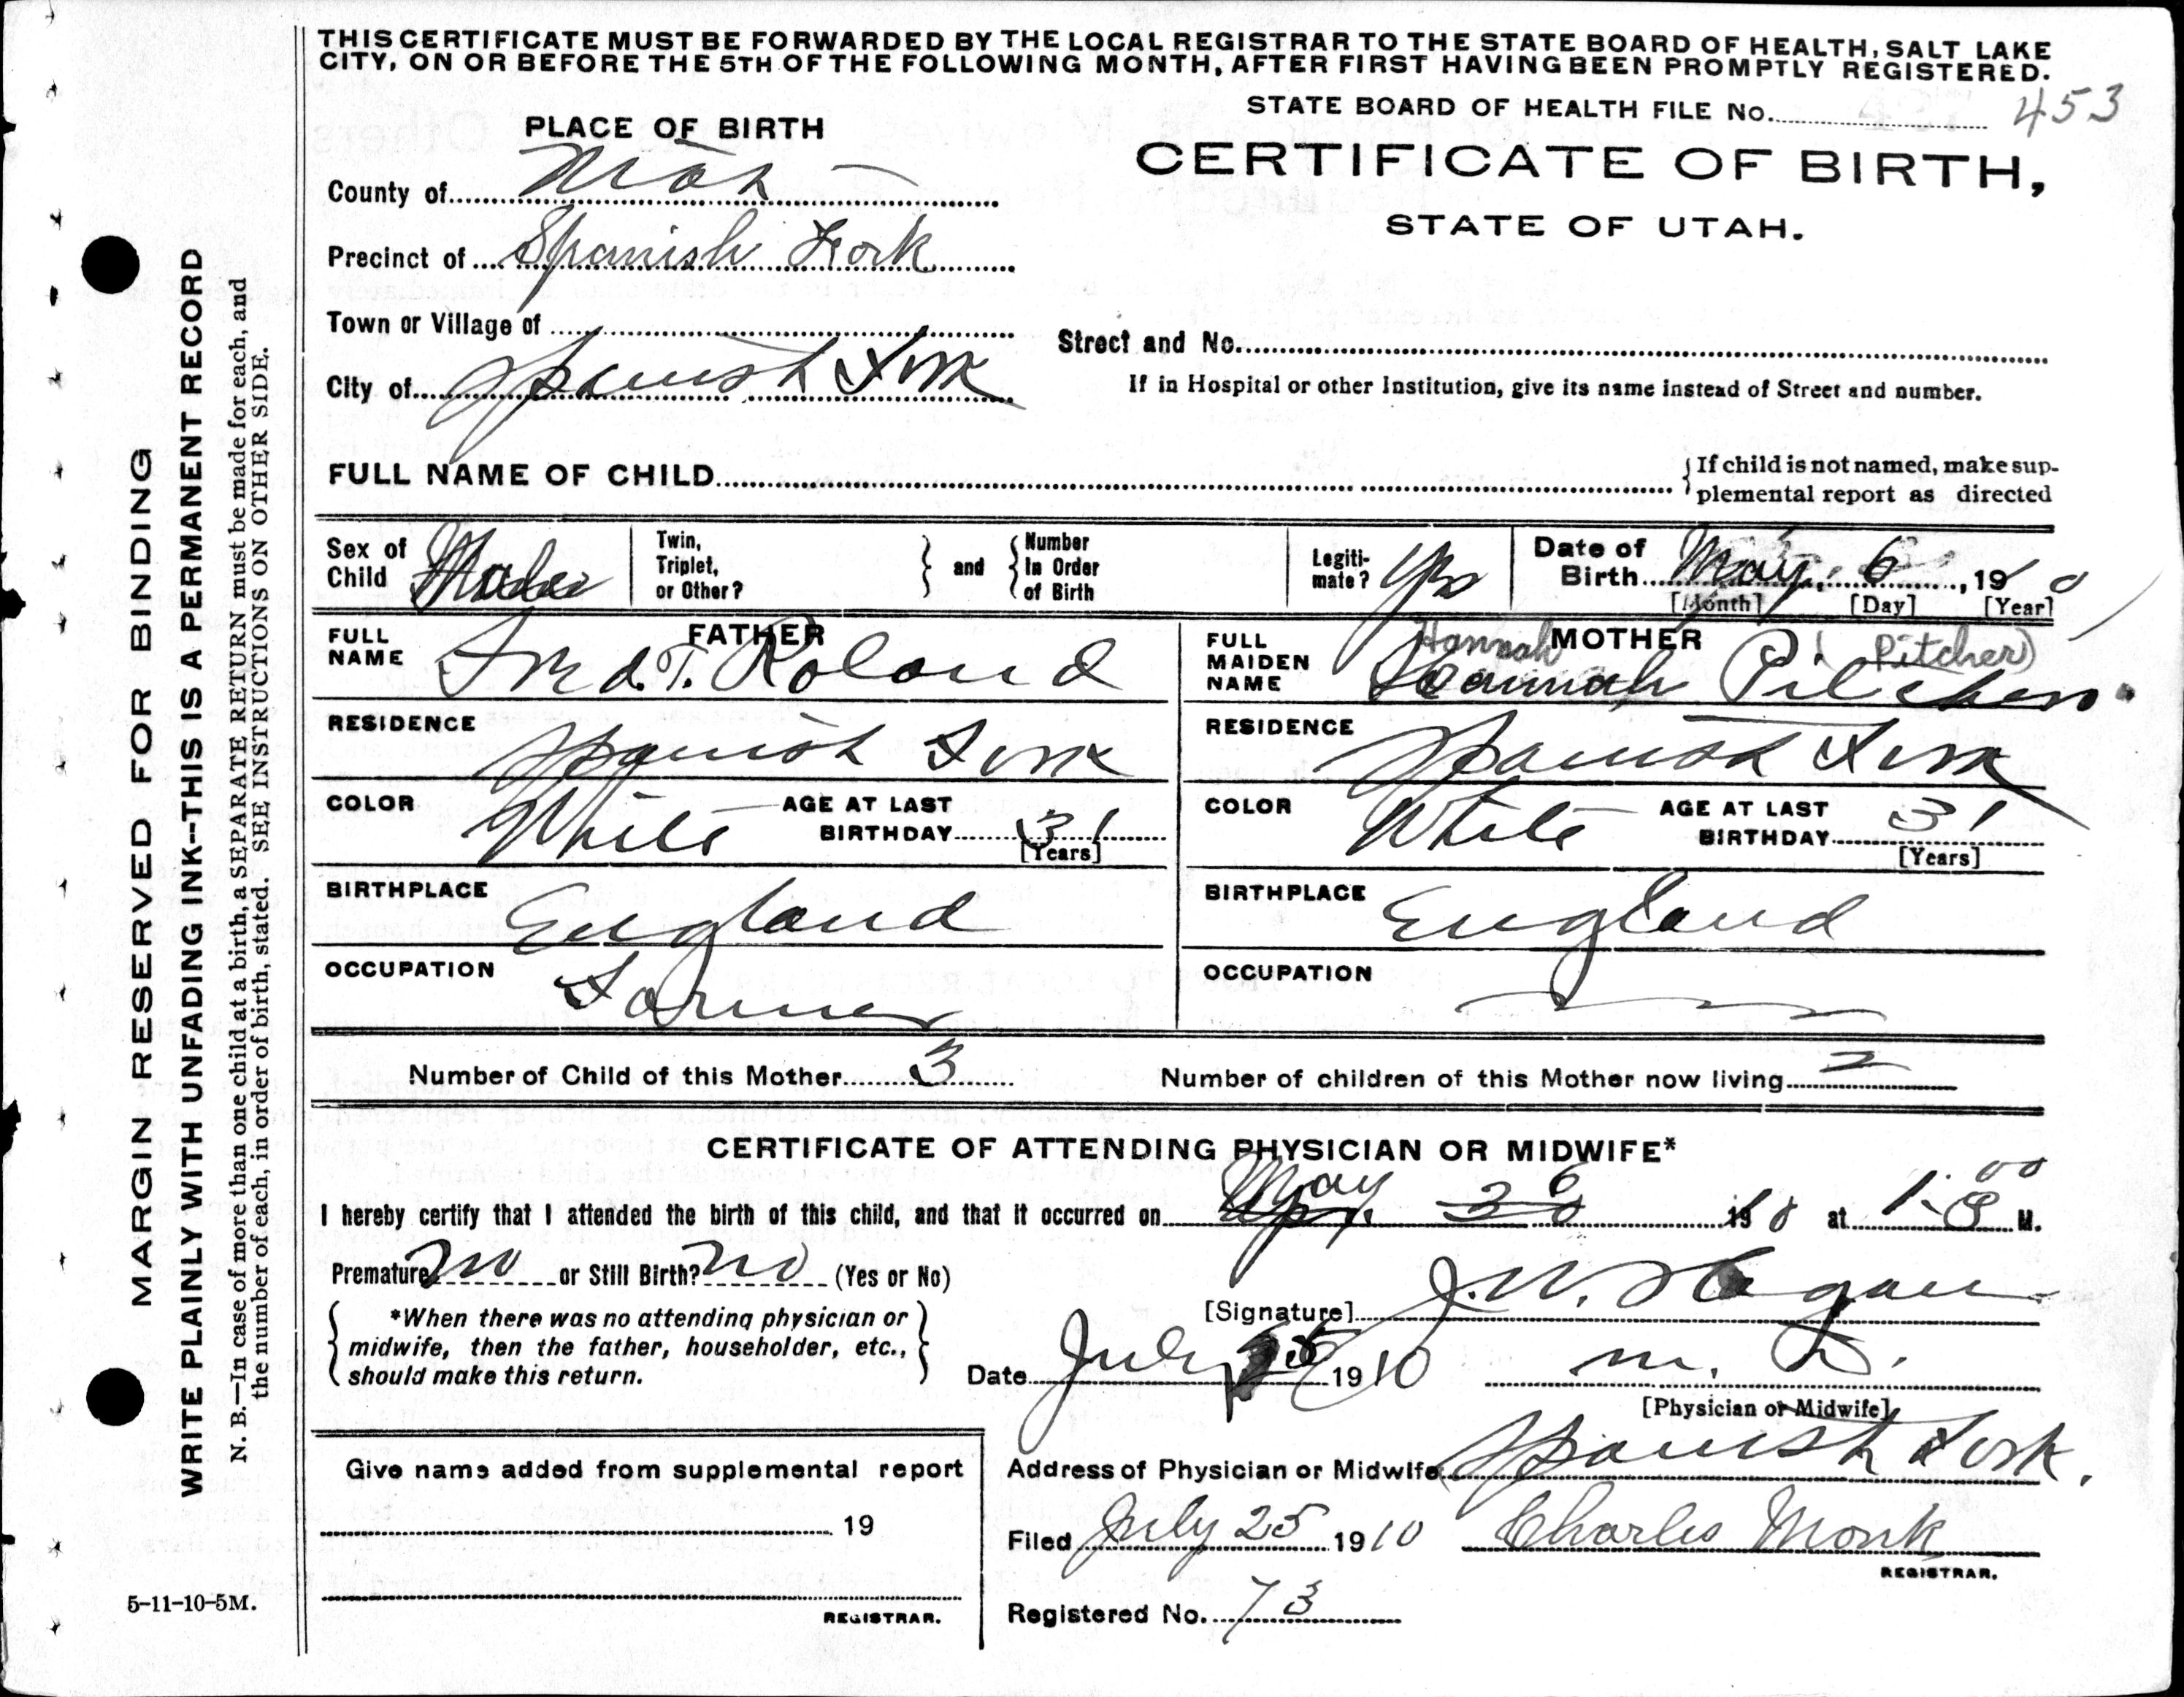 THIS CERTIFICATE MUST BE FORWARDED BY THE LOCAL REGISTRAR TO THE STATE BOARD OF HEALTH, SALT LAKE
CITY, ON OR BEFORE THE 5TH OF THE FOLLOWING MONTH, AFTER FIRST HAVING BEEN PROMPTLY REGISTERED.
STATE BOARD OF HEALTH FILE No. 453
PLACE OF BIRTH
CERTIFICATE OF BIRTH,
STATE OF UTAH.
County of Utah
Precinct of Spanish Fork
Town or Village of
Street and No.
City of Spanish Fork
If in Hospital or other Institution, give its name instead of Street and number.
FULL NAME OF CHILD
If child is not named, make sup-
plemental report as directed
Sex of Child Male
Twin, Triplet, or Other?
and
Number In Order of Birth
Legiti-mate? Yes
Date of Birth May 6, 1910
[Month] [Day] [Year]
FATHER
FULL NAME Fred. T. Roland
MOTHER
FULL MAIDEN NAME Hannah Pilcher
Hannah (Pitcher)
RESIDENCE Spanish Fork
RESIDENCE Spanish Fork
COLOR White AGE AT LAST BIRTHDAY 31 [Years]
COLOR White AGE AT LAST BIRTHDAY 31 [Years]
BIRTHPLACE England
BIRTHPLACE England
OCCUPATION Farmer
OCCUPATION
Number of Child of this Mother 3
Number of children of this Mother now living 2
CERTIFICATE OF ATTENDING PHYSICIAN OR MIDWIFE*
I hereby certify that I attended the birth of this child, and that it occurred on May 6 1910 at M.
Premature No or Still Birth? No (Yes or No)
*When there was no attending physician or
midwife, then the father, householder, etc.,
should make this return.
[Signature] J. W. Hagan
Date July 25 1910 M. D.
[Physician or Midwife]
Give name added from supplemental report
Address of Physician or Midwife Spanish Fork.
19
Filed July 25 1910 Charles Monk
REGISTRAR.
Registered No. 73
REGISTRAR.
5-11-10-5M.
MARGIN RESERVED FOR BINDING
WRITE PLAINLY WITH UNFADING INK--THIS IS A PERMANENT RECORD
N. B.—In case of more than one child at a birth, a SEPARATE RETURN must be made for each, and
the number of each, in order of birth, stated. SEE INSTRUCTIONS ON OTHER SIDE.